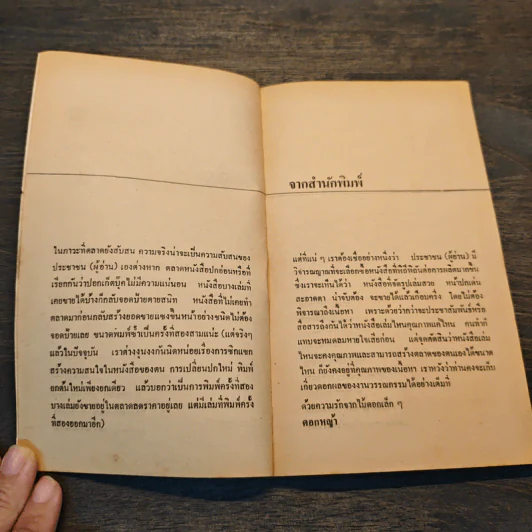 ในภาวะที่ตลาดยังสับสน ความจริงน่าจะเป็นความสับสนของ
ประชาชน (ผู้อ่าน) เองต่างหาก ตลาดหนังสือปกอ่อนหรือที่
เรียกกันว่าปอกเก็ตบุ๊คไม่มีความแน่นอน หนังสือบางเล่มที่
เคยขายได้บ้างก็กลับจอดป้ายตายสนิท หนังสือที่ไม่เคยทำ
ตลาดมาก่อนกลับสร้างยอดขายแซงขึ้นหน้าอย่างชนิดไม่ต้อง
จอดป้ายเลย ขนาดพิมพ์ซ้ำเป็นครั้งที่สองสามแน่ะ (แต่จริงๆ
แล้วในปัจจุบัน เราต่างงุนงงกันนิดหน่อยเรื่องการซิกแซก
สร้างความสนใจในหนังสือของตน การเปลี่ยนปกใหม่ พิมพ์
ยกต้นใหม่เพียงยกเดียว แล้วบอกว่าเป็นการพิมพ์ครั้งที่สอง
บางเล่มยังขายอยู่ในตลาดลดราคาอยู่เลย แต่มีเล่มที่พิมพ์ครั้ง
ที่สองออกมาอีก)
จากสำนักพิมพ์
แต่ที่แน่ ๆ เราต้องเชื่ออย่างหนึ่งว่า ประชาชน (ผู้อ่าน) มี
วิจารณญาณที่จะเลือกซื้อหนังสือที่พิถีพิถันต่อการผลิตมากขึ้น
ซึ่งเราจะเห็นได้ว่า หนังสือที่จัดรูปเล่มสวย หน้าปกเด่น
สะอาดตา น่าจับต้อง จะขายได้แล้วเกือบครึ่ง โดยไม่ต้อง
พิจารณาถึงเนื้อหา เพราะด้วยว่ากว่าจะประชาสัมพันธ์หรือ
สื่อสารถึงกันได้ว่าหนังสือเล่มไหนคุณภาพแค่ไหน คนทำก็
แทบจะหมดลมหายใจเสียก่อน แต่จุดตัดสินว่าหนังสือเล่ม
ไหนจะคงคุณภาพและสามารถสร้างตลาดของตนเองได้ขนาด
ไหน ก็ยังคงอยู่ที่คุณภาพของเนื้อหา เราหวังว่าท่านคงจะเก็บ
เกี่ยวดอกผลของงานวรรณกรรมได้อย่างเต็มที่
ด้วยความรักจากไม้ดอกเล็ก ๆ
ดอกหญ้า